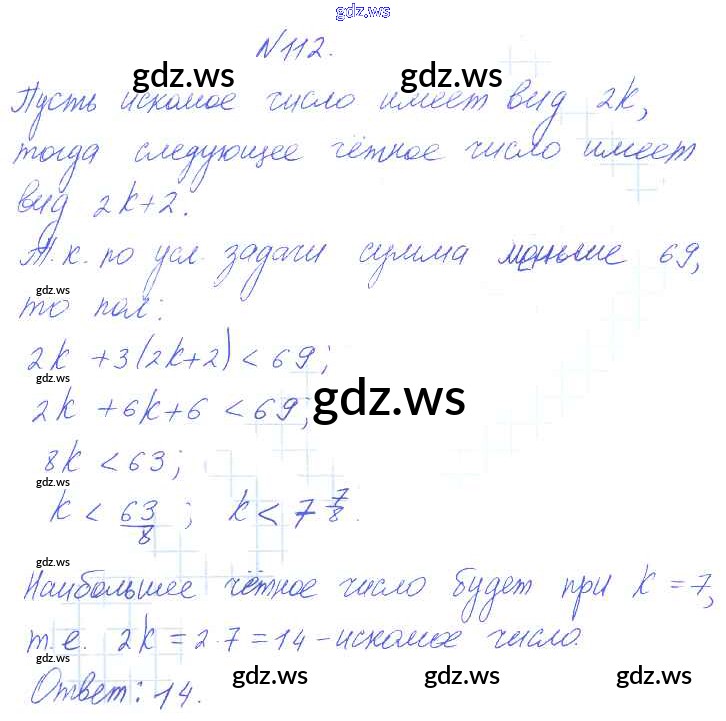 gdz.ws
N112.
gdz.ws gdz.ws
Пусть искомое число имеет вид 2k,
тогда следующее чётное число имеет
вид 2k+2.
Т.к. по усл. задачи сумма меньше 69,
gdz.ws
то пол:
2k +3(2k+2) < 69;
gdz.ws
2k +6k+6 < 69;
gdz.ws
8k < 63;
gdz.ws
k < 63/8 ; k < 7 7/8.
gdz.ws
Наибольшее чётное число будет при k = 7,
т.е. 2k = 2·7 = 14 - искомое число.
gdz.ws
Ответ: 14.
gdz.ws gdz.ws gdz.ws